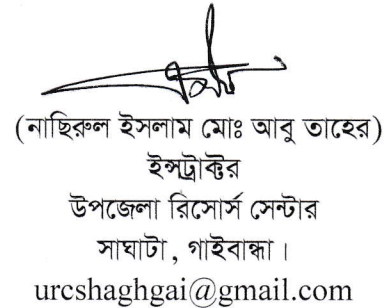 (নাছিরুল ইসলাম মোঃ আবু তাহের)
ইন্সট্রাক্টর
উপজেলা রিসোর্স সেন্টার
সাঘাটা, গাইবান্ধা।
urcshaghgai@gmail.com